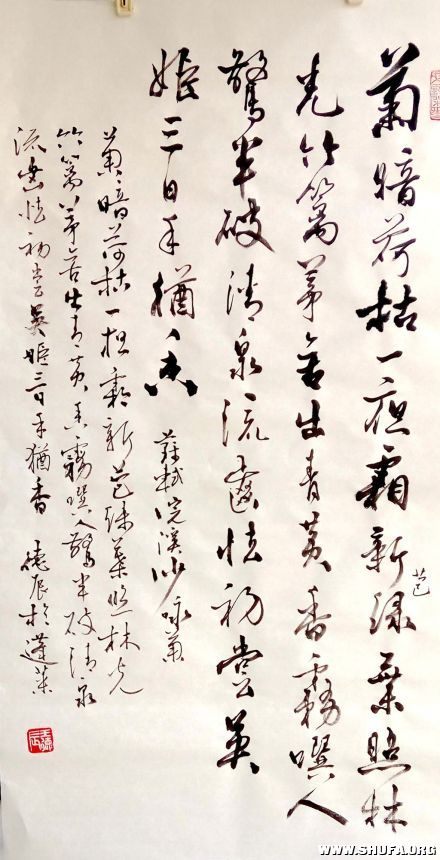 菊暗荷枯一夜霜新绿葉照林
苞
光竹篱茅舍出青黄香霧噀人
驚半破清泉流齒怯初尝吴
姬三日手猶香
蘇軾浣溪沙咏菊
菊暗荷枯一夜霜新苞绿葉照林光
竹篱茅舍出青黄香霧噀人驚半破清泉
流齒怯初尝吴姬三日手猶香 德辰於蓬莱
WWW.SHUFA.ORG